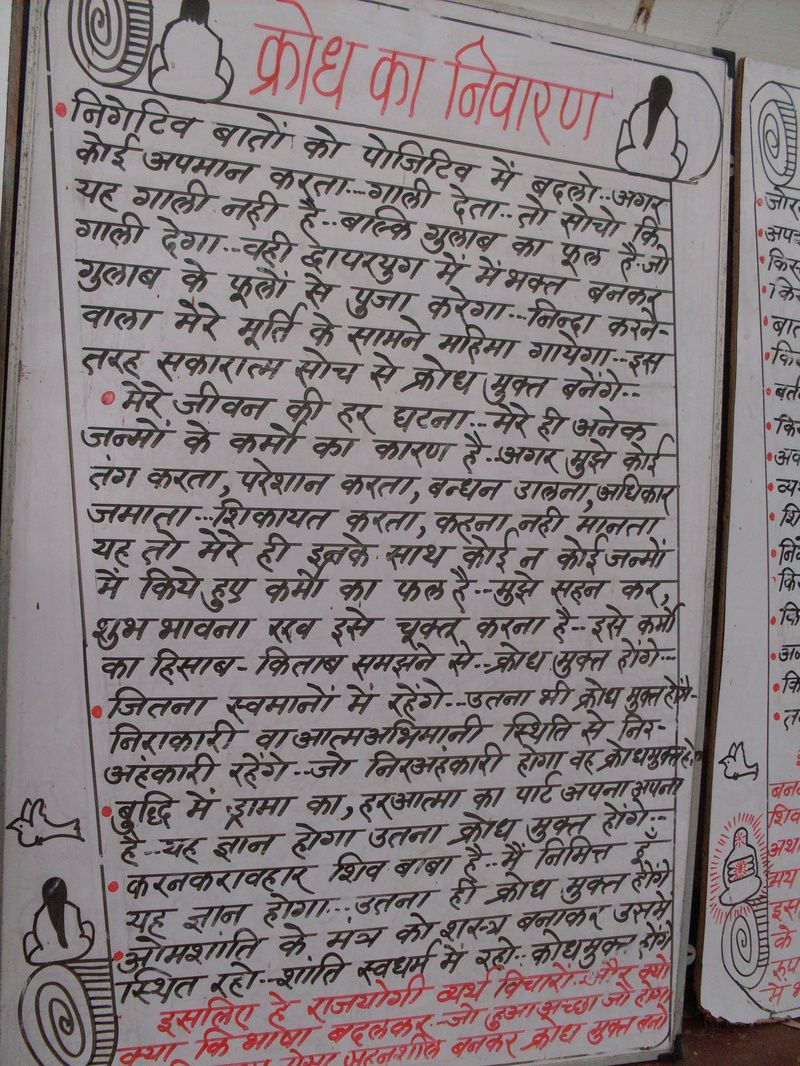 क्रोध का निवारण
निगेटिव बातों को पोजिटिव में बदलो..अगर
कोई अपमान करता...गाली देता..तो सोचो कि
यह गाली नही है..बल्कि गुलाब का फूल है..जो
गाली देगा..वही द्वापरयुग में में भक्त बनकर
गुलाब के फूलों से पुजा करेगा...निन्दा करने-
वाला मेरे मूर्ति के सामने महिमा गायेगा...इस
तरह सकारात्म सोच से क्रोध मुक्त बनेंगे..
मेरे जीवन की हर घटना...मेरे ही अनेक
जन्मों के कर्मो का कारण है..अगर मुझे कोई
तंग करता, परेशान करता, बन्धन डालना, अधिकार
जमाता...शिकायत करता, कहना नही मानता
यह तो मेरे ही इनके साथ कोई न कोई जन्मों
में किये हुए कर्मो का फल है..मुझे सहन कर,
शुभ भावना रख इसे चूक्तू करना है..इसे कर्मो
का हिसाब-किताब समझने से..क्रोध मुक्त होंगे...
जितना स्वमानों में रहेंगे..उतना भी क्रोध मुक्त होंगे-
निराकारी वा आत्मअभिमानी स्थिति से निर-
अहंकारी रहेंगे..जो निरअहंकारी होगा वह क्रोधमुक्त हो
बुद्धि में ड्रामा का, हरआत्मा का पार्ट अपना अपना
है..यह ज्ञान होगा उतना क्रोध मुक्त होंगे...
करनकरावहार शिव बाबा है..मैं निमित्त हूँ
यह ज्ञान होगा...उतना ही क्रोध मुक्त होंगे
ओमशांति के मंत्र को शस्त्र बनाकर उसमे
स्थित रहो..शांति स्वधर्म में रहो..क्रोधमुक्त होंगे
इसलिए हे राजयोगी व्यर्थ विचारो..और क्यो
क्या कि भाषा बदलकर..जो हुआ अच्छा जो होगा
सहनशील बनकर क्रोध मुक्त बनो
जोर
किस
बात
व्यर्थ
शिव
इस
के
रुप